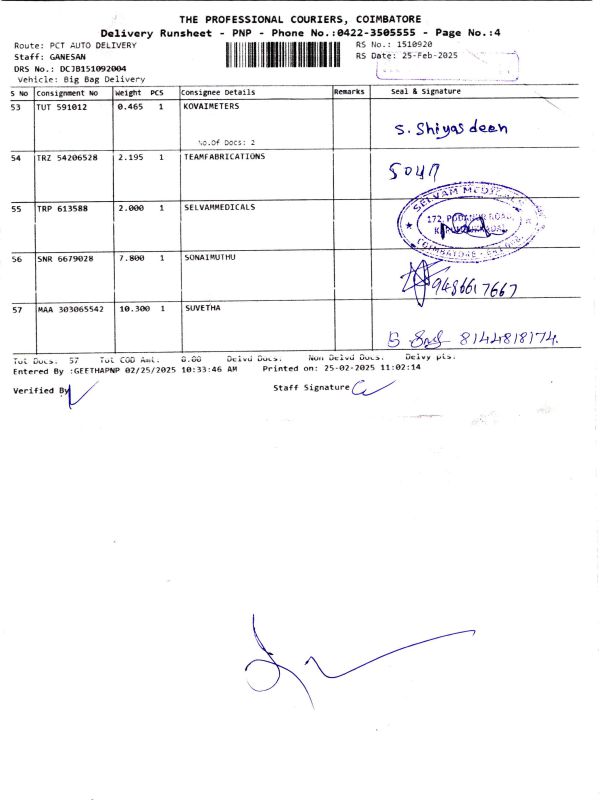 THE PROFESSIONAL COURIERS, COIMBATORE
Delivery Runsheet - PNP - Phone No.:0422-3505555 - Page No.:4
Route: PCT AUTO DELIVERY
RS No.: 1510920
Staff: GANESAN
RS Date: 25-Feb-2025
DRS No.: DCJB151092004
Vehicle: Big Bag Delivery
S No Consignment No Weight PCS Consignee Details Remarks Seal & Signature
53 TUT 591012 0.465 1 KOVAIMETERS
No.Of Docs: 2
S. Shiyas deen
54 TRZ 54206528 2.195 1 TEAMFABRICATIONS
55 TRP 613588 2.000 1 SELVAMMEDICALS
SELVAM MEDICALS
172, PODANUR ROAD,
COIMBATORE
56 SNR 6679028 7.800 1 SONAIMUTHU
9486617667
57 MAA 303065542 10.300 1 SUVETHA
8144818174.
Tot Docs. 57 Tot COD Amt. 0.00 Delvd Docs. Non Delvd Docs. Delvy pts.
Entered By :GEETHAPNP 02/25/2025 10:33:46 AM Printed on: 25-02-2025 11:02:14
Verified By
Staff Signature